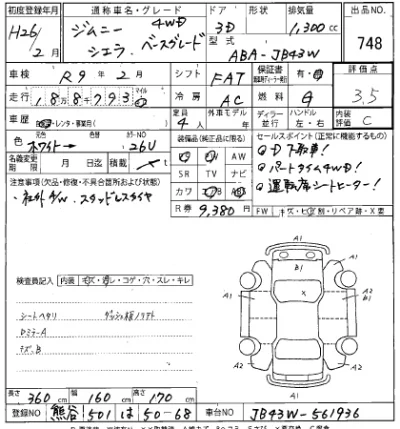 初度登録年月 通称車名・グレード ドア 形状 排気量 出品NO.
H26/2月 ジムニーシエラ 4WD ベースグレード 3D 1,300cc 748
型式 ABA-JB43W
車検 R9年2月 シフト FAT 保証書 有・ 評価点
走行 188793 マイル 冷房 AC 燃料 3.5
車歴 レンタ・事業用 定員 4人 外車モデル年 ディーラー 並行 ハンドル 左・右 内装評価 C
色 元色 ホワイト→ カラーNO 26U 装備品(純正品に限る) セールスポイント(正常に機能するもの)
名義変更期限 月 日迄 積載 t AW ①D下取車!
SR TV ナビ ②パートタイム4WD!
注意事項(欠品・修復・不具合箇所および状態) カワ ③運転席シートヒーター!
・社外A/W、スタッドレスタイヤ R券 9,380円 FW キズ・ヒビ・別・リペア跡・X要
検査員記入 内装 キズ・汚し・コゲ・穴・スレ・キレ
シートヘタリ
DミラーA
キズ、B
A1
B1
A1 X A2 B1
A1 A2
A2
A1
長さ 360cm 幅 160cm 高さ 170cm
登録NO 熊谷 501 は 50-68 車台NO JB43W-561936